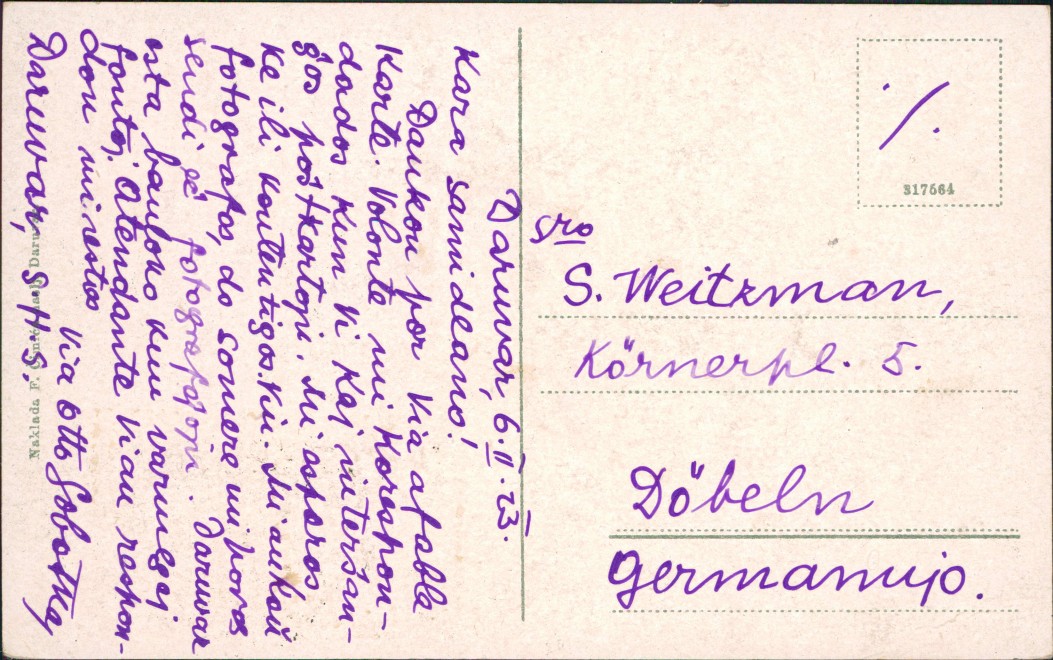 Daruvar, 6.II.23.
Kara samideano!
Dankon por Via afabla
karte. Volonte mi korespon-
dados kun Vi kaj interŝan-
ĝos poŝtkartojn. Mi esparas
ke ili kontentigos Vin. Mi ankaŭ
fotografas, do somere mi povos
sendi eĉ fotografaĵojn. Daruvar
esta banloko kun varmegaj
fontoj. Atendante Vian respon-
don mi restas Via Otto Sobotka,
Daruvar, S.H.S.
Naklada F.
317564
Sro
S. Weitzman,
Körnerpl. 5.
Döbeln
Germanujo.